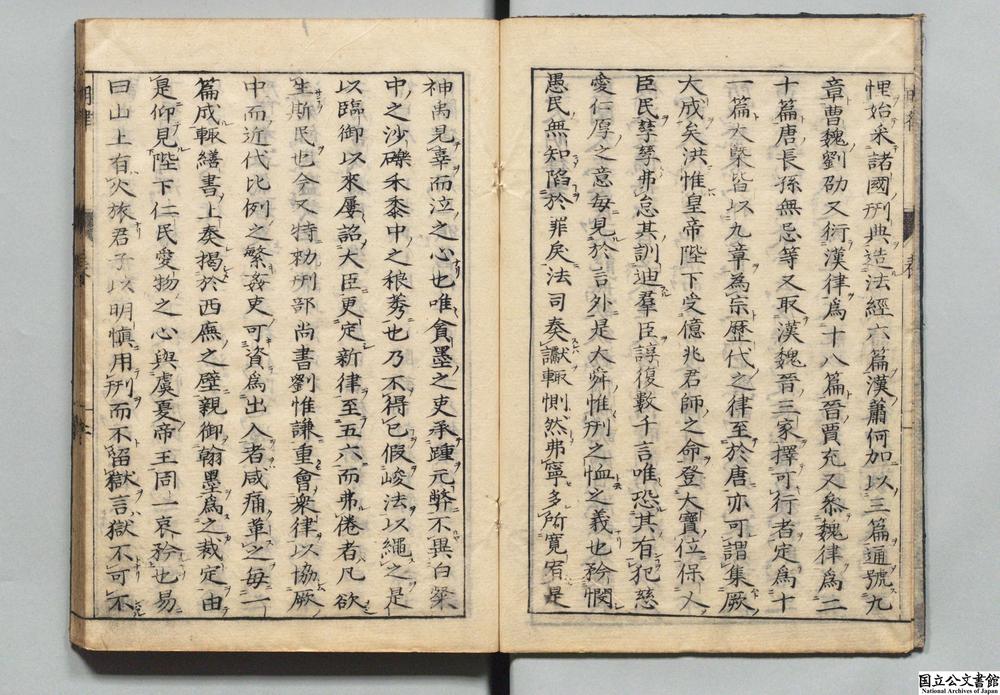 悝始采諸國刑典造法經六篇漢蕭何加以三篇通號九
章曹魏劉劭又衍漢律爲十八篇晉賈充又叅魏律爲二
十篇唐長孫無忌等又取漢魏晉三家擇可行者定爲十
一篇大槩皆以九章爲宗歷代之律至於唐亦可謂集厥
大成矣洪惟皇帝陛下受億兆君師之命登大寶位保乂
臣民孳孳弗怠其訓迪羣臣諄復數千言唯恐其有犯慈
愛仁厚之意每見於言外是大舜惟刑之恤之義也矜憫
愚民無知陷於罪戾法司奏讞輒惻然弗寧多所寬宥是
神禹見辜而泣之心也唯貪墨之吏承踵元弊不異白粲
中之沙礫禾黍中之稂莠也乃不得已假峻法以繩之是
以臨御以來屢詔大臣更定新律至五六而弗倦者凡欲
生斯民也今又特勑刑部尚書劉惟謙重會衆律以協厥
中而近代比例之繁姦吏可資爲出入者咸痛革之每一
篇成輒繕書上奏揭於西廡之壁親御翰墨爲之裁定由
是仰見陛下仁民愛物之心與虞夏帝王同一哀矜也易
曰山上有火旅君子以明愼用刑而不留獄言獄不可不
明律
国立公文書館
National Archives of Japan